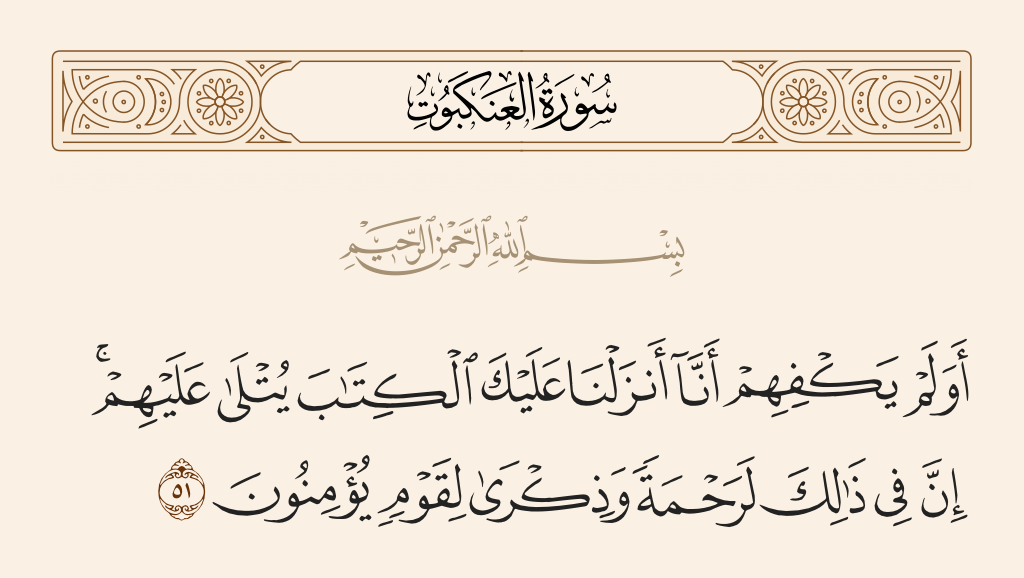 سُورَةُ العَنكَبُوتِ
بِسْمِ ٱللَّهِ ٱلرَّحْمَٰنِ ٱلرَّحِيمِ
أَوَلَمْ يَكْفِهِمْ أَنَّآ أَنزَلْنَا عَلَيْكَ ٱلْكِتَٰبَ يُتْلَىٰ عَلَيْهِمْ ۚ
إِنَّ فِى ذَٰلِكَ لَرَحْمَةً وَذِكْرَىٰ لِقَوْمٍ يُؤْمِنُونَ ٥١